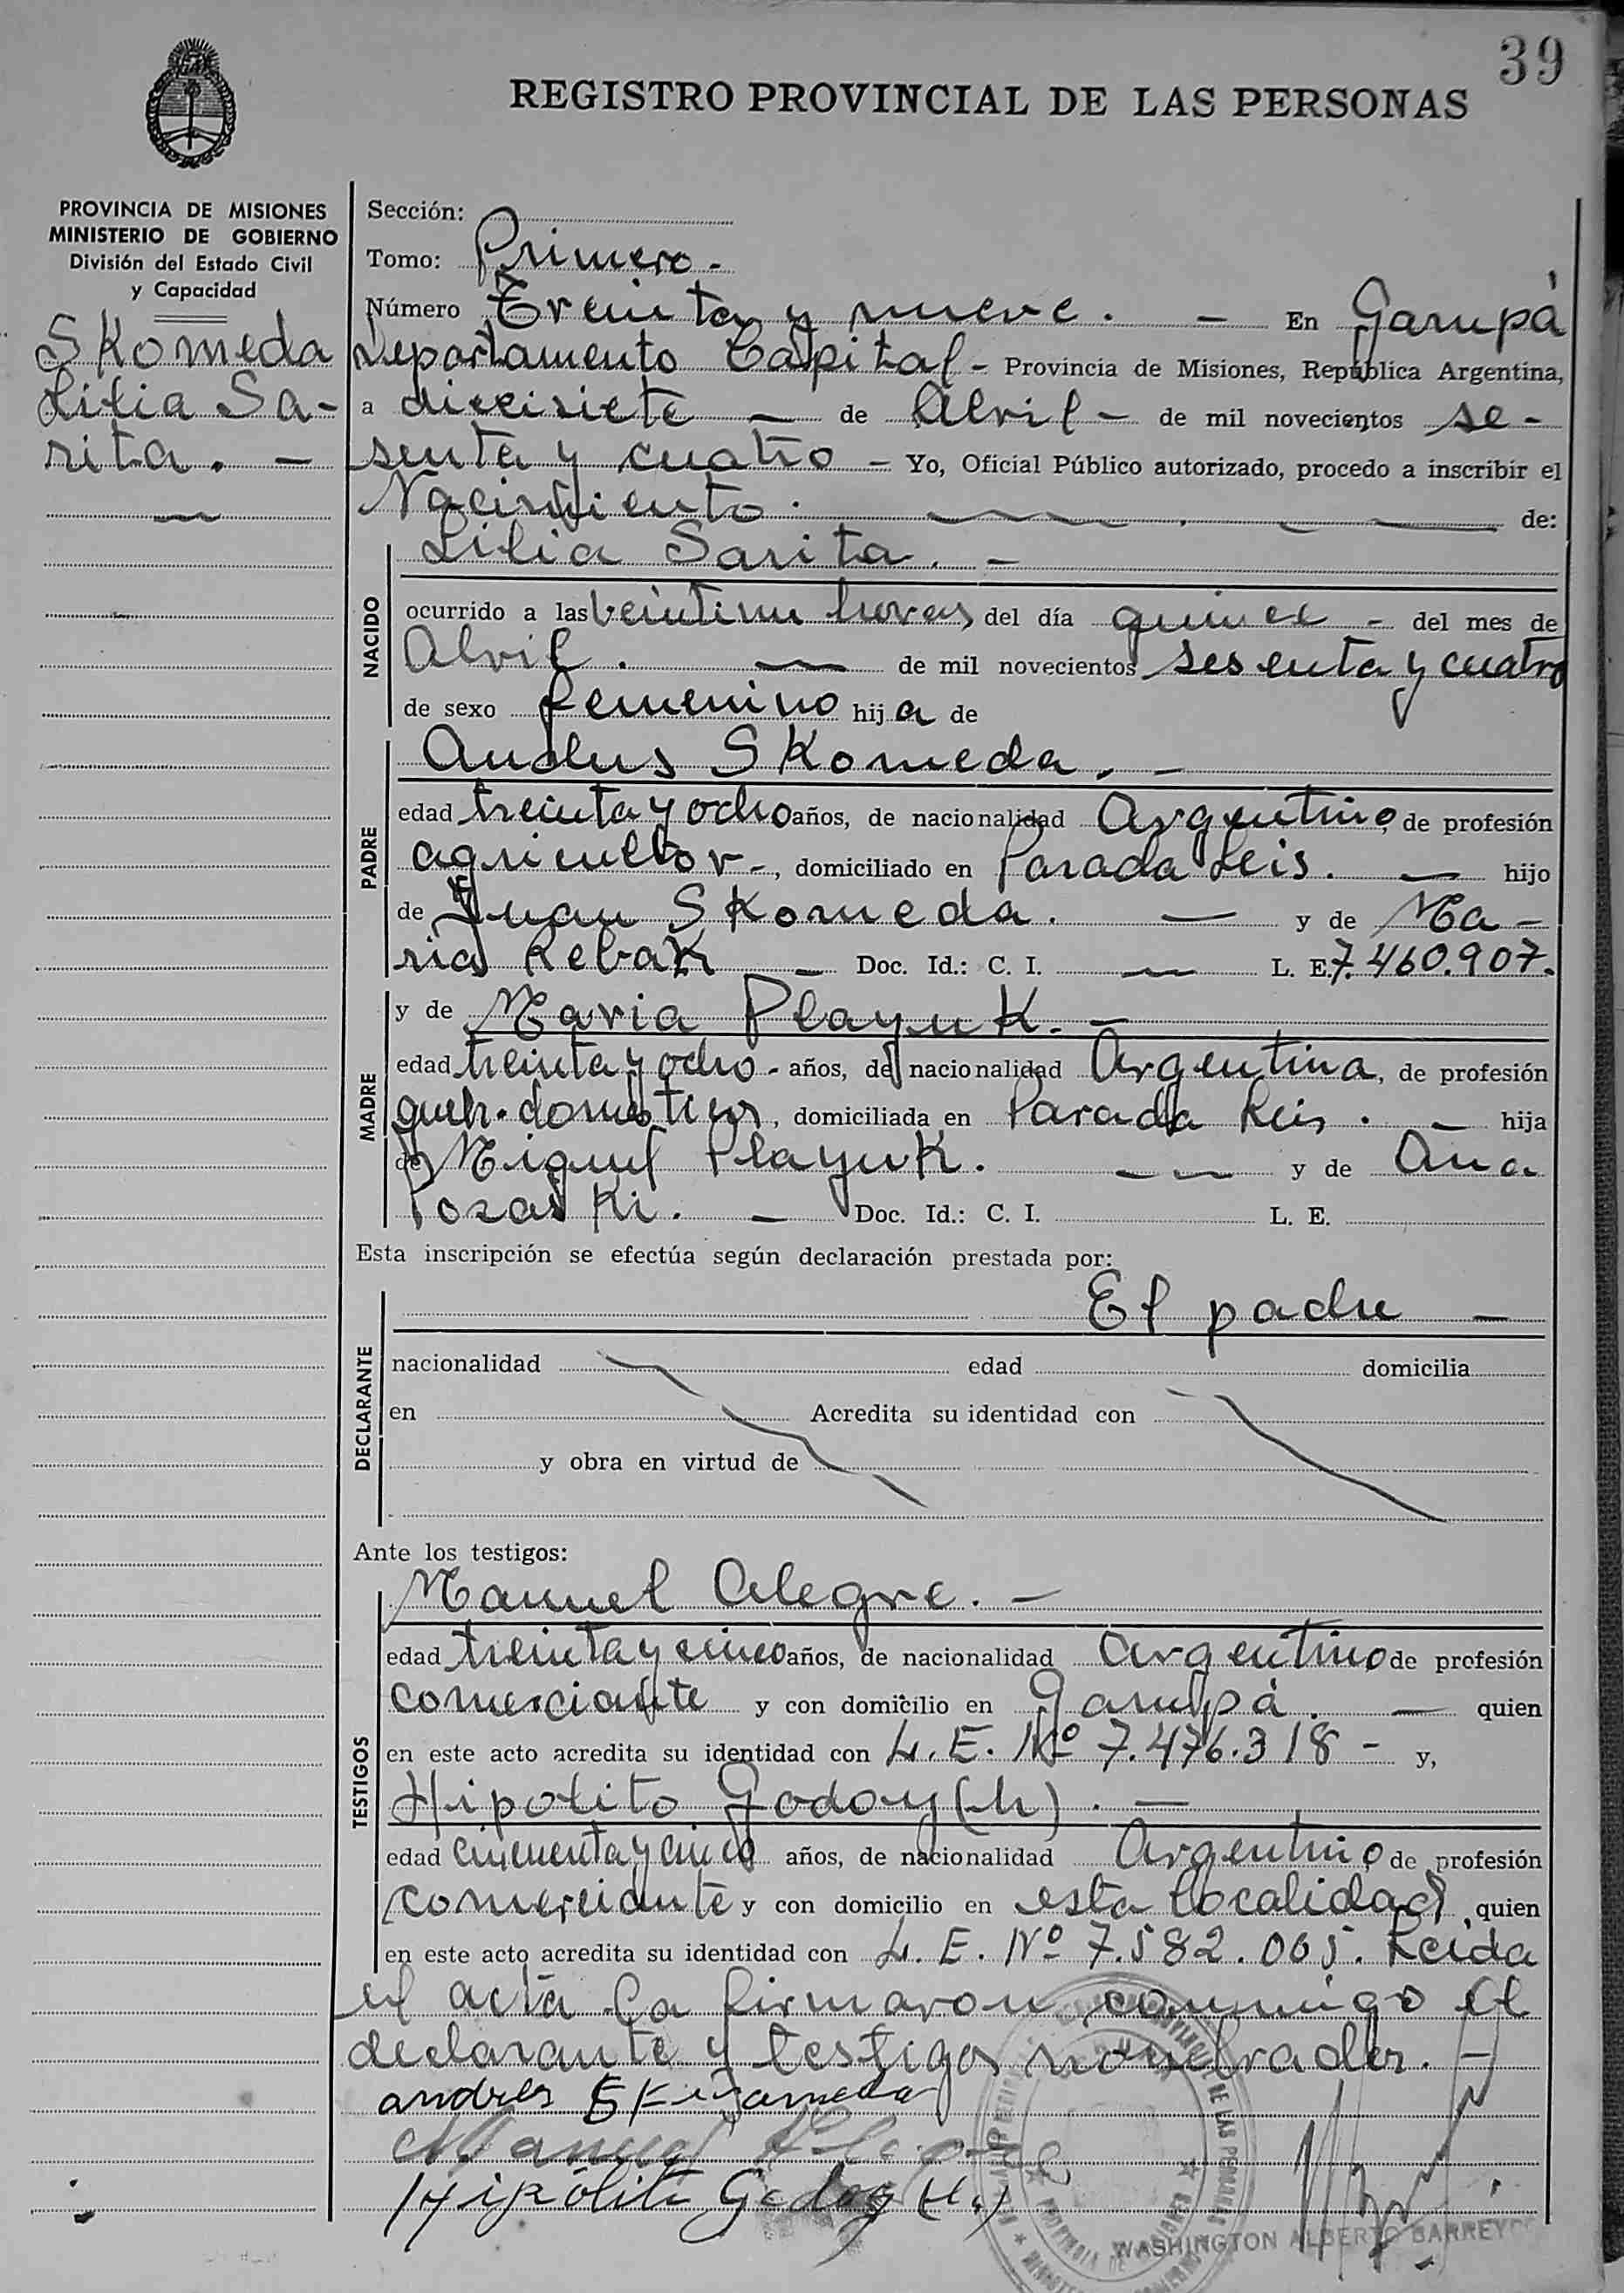 39
REGISTRO PROVINCIAL DE LAS PERSONAS
PROVINCIA DE MISIONES
MINISTERIO DE GOBIERNO
División del Estado Civil
y Capacidad
Skomeda
Lilia Sa-
rita. -
Sección:
Tomo: Primero.-
Número Treinta y nueve. - En Garupá
Departamento Capital - Provincia de Misiones, República Argentina,
a diecisiete - de Abril - de mil novecientos se-
senta y cuatro - Yo, Oficial Público autorizado, procedo a inscribir el
Nacimiento. de:
NACIDO
Lilia Sarita. -
ocurrido a las veintiun horas del día quince - del mes de
Abril. - de mil novecientos sesenta y cuatro
de sexo femenino hija de
PADRE
Andres Skomeda. -
edad treinta y ocho años, de nacionalidad Argentino de profesión
agricultor-, domiciliado en Parada Leis. - hijo
de Juan Skomeda. - y de Ma-
ria Rebak - Doc. Id.: C. I. - L. E. 7.460.907.
MADRE
y de Maria Playuk. -
edad treinta y ocho - años, de nacionalidad Argentina, de profesión
queh. domesticos, domiciliada en Parada Leis. - hija
de Miguel Playuk. - y de Ana
Pozaski. - Doc. Id.: C. I. L. E.
Esta inscripción se efectúa según declaración prestada por:
DECLARANTE
El padre -
nacionalidad edad domicilia
en Acredita su identidad con
y obra en virtud de
Ante los testigos:
TESTIGOS
Manuel Alegre. -
edad treinta y cinco años, de nacionalidad Argentino de profesión
comerciante y con domicilio en Garupá. - quien
en este acto acredita su identidad con L. E. Nº 7.476.318 - y,
Hipolito Godoy (h). -
edad cincuenta y cinco años, de nacionalidad Argentino de profesión
comerciante y con domicilio en esta localidad, quien
en este acto acredita su identidad con L. E. Nº 7.582.065. Leida
el acta la firmaron conmigo el
declarante y testigos nombrados. -
andres
Manuel
Hipólito Godoy (h)
WASHINGTON ALBERTO BARREY